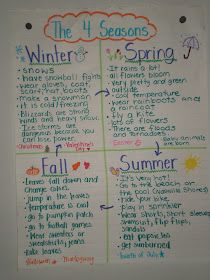 The 4 Seasons
Winter
• snows
• have snowball fights
• wear gloves, coat,
scarf, hat, boots
• Make a snowman
• it is cold, freezing
• Blizzards are strong
winds and heavy snow.
• Ice storms are
dangerous because
you can lose power.
Christmas
Valentine's
Day
Spring
• It rains a lot!
• all flowers bloom
• Very pretty and green
outside
• cool temperature
• wear rainboots and
a raincoat
• fly a kite
• lots of flowers
• There are floods
and tornadoes
Easter
Baby animals
are born
Fall
• Leaves fall down and
change colors
• jump in the leaves
• temperature is cool
• go to pumpkin patch
• go to football games
• Wear sweaters or
sweatshirts, jeans
• Rake leaves
Halloween
Thanksgiving
Summer
• It's very hot!
• Go to the beach or
the pool
• ride your bike
• play in summer
• Wear shorts, short sleeves
swimsuit, flip flops,
sandals
• eat popsicles
• get sunburned
Fourth of July